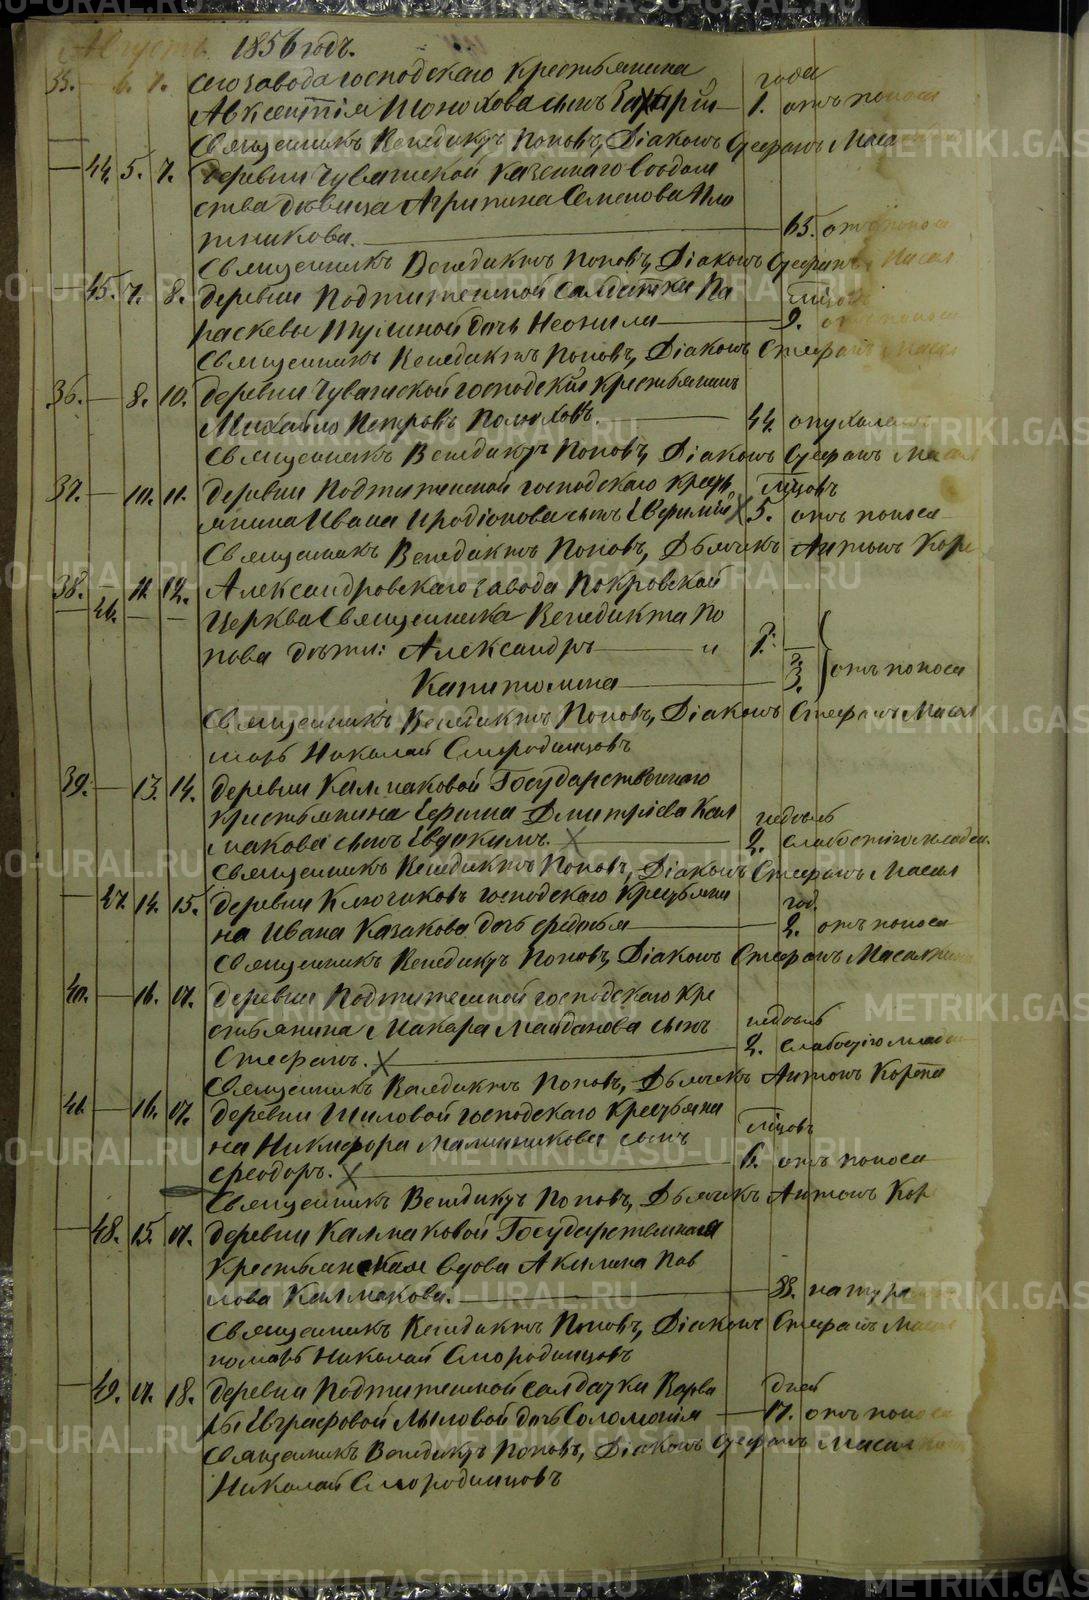 Августъ 1856 годъ.
35. 6. 7. сего завода господскаго крестьянина года
Авксентія Монохова сынъ Захарій — 1. отъ поноса
Священникъ Венедиктъ Поповъ, Діаконъ Стефанъ Масал
— 44. 5. 7. Деревни Чувашской казеннаго
ства дѣвица Агрипина Семенова Пло
тникова. — 65. отъ поноса
Священникъ Венедиктъ Поповъ, Діаконъ Стефанъ Масал
— 45. 7. 8. деревни Подтишенной салдатки Па
раскевы дочь Неонила — 9. отъ поноса
Священникъ Венедиктъ Поповъ, Діаконъ Стефанъ Масал
36. — 8. 10. деревни Чувашской господскій крестьянинъ
Михайло Петровъ — 44.
Священникъ Венедиктъ Поповъ, Діаконъ Стефанъ Масал
37. — 10. 11. деревни Подтишенной господскаго кресть мцовъ
янина Ивана Иродіонова сынъ Евфимій 5. отъ поноса
Священникъ Венедиктъ Поповъ, Дьячекъ Антонъ Коре
38. 11. 12. Александровскаго завода Покровской
46. — — Церкви Священника Венедикта По
пова дѣти: Александръ — " 1. —
Капитолина — 3. отъ поноса
Священникъ Венедиктъ Поповъ, Діаконъ Стефанъ Масал
марь Николай Смородинцовъ
39. — 13. 14. деревни Калмаковой Государственнаго
крестьянина Ефима Дмитріева Кал недѣль
макова сынъ Евдокимъ. — 2. слабостію младен.
Священникъ Венедиктъ Поповъ, Діаконъ Стефанъ Масал
— 47. 14. 15. деревни Ключиковъ господскаго Крестьяни год.
на Ивана Казакова дочь — 2. отъ поноса
Священникъ Венедиктъ Поповъ, Діаконъ Стефанъ Масалкин
40. — 16. 17. деревни Подтишенной господскаго кре
стьянина Макара Майданова сынъ недѣль
Стефанъ. — 2. слабостію младен
Священникъ Венедиктъ Поповъ, Дьячекъ Антонъ Корепа
41. — 16. 17. деревни Шиловой господскаго Крестьяни
на Никифора Малинникова сынъ мцовъ
Ѳеодоръ. — 6. отъ поноса
Священникъ Венедиктъ Поповъ, Дьячекъ Антонъ Кор
— 48. 15. 17. деревни Калмаковой Государственная
Крестьянская вдова Акилина Пав
лова Калмакова. — 88. натура
Священникъ Венедиктъ Поповъ, Діаконъ Стефанъ Масал
помарь Николай Смородинцовъ
— 49. 17. 18. деревни Подтишенной салдатки Варва дней
ры Евграфовой Мыловой дочь Соломонія — 17. отъ поноса
Священникъ Венедиктъ Поповъ, Діаконъ Стефанъ Масалкин
Николай Смородинцовъ
METRIKI.GASO-URAL.RU